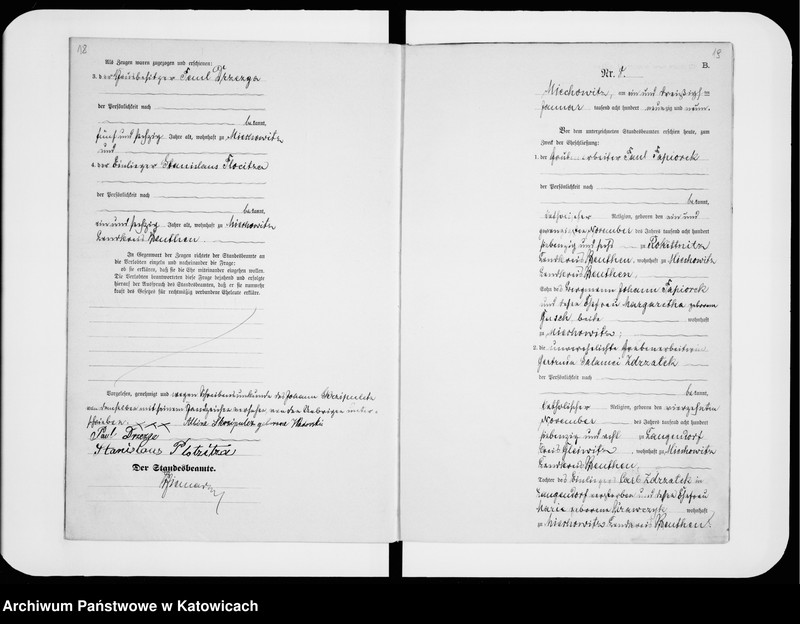 18
Als Zeugen waren zugezogen und erschienen:
3. der Hausbesitzer Paul Drzezga
der Persönlichkeit nach
bekannt,
fünf und sechzig Jahre alt, wohnhaft zu Miechowitz
und
4. der Einlieger Stanislaus
der Persönlichkeit nach
bekannt,
ein und sechzig Jahre alt, wohnhaft zu Miechowitz
Landkreis Beuthen
In Gegenwart der Zeugen richtete der Standesbeamte an
die Verlobten einzeln und nacheinander die Frage:
ob sie erklären, daß sie die Ehe miteinander eingehen wollen.
Die Verlobten beantworteten diese Frage bejahend und erfolgte
hierauf der Ausspruch des Standesbeamten, daß er sie nunmehr
kraft des Gesetzes für rechtmäßig verbundene Eheleute erkläre.
Vorgelesen, genehmigt und wegen Schreibensunkunde des Johann
von demselben mit seinem Handzeichen versehen, von den Uebrigen unter-
schrieben. xxx geborene
Paul Drzezga
Stanislaus
Der Standesbeamte.
19
B.
Nr. 8.
Miechowitz, am ein und dreißigsten
Januar tausend acht hundert neunzig und neun.
Vor dem unterzeichneten Standesbeamten erschienen heute, zum
Zweck der Eheschließung:
1. der Grubenarbeiter Paul Tapiorek
der Persönlichkeit nach
bekannt,
katholischer Religion, geboren den ein und
zwanzigsten November des Jahres tausend acht hundert
siebenzig und zu Rokittnitz
Landkreis Beuthen, wohnhaft zu Miechowitz
Landkreis Beuthen,
Sohn des Bergmann Johann Tapiorek
und dessen Ehefrau Margaretha geborene
beide wohnhaft
zu Miechowitz;
2. die unverehelichte Grubenarbeiterin
Gertruda Salomea Zdrzalek
der Persönlichkeit nach
bekannt,
katholischer Religion, geboren den vierzehnten
November des Jahres tausend acht hundert
siebenzig und acht zu Langendorf
Kreis Gleiwitz, wohnhaft zu Miechowitz
Landkreis Beuthen,
Tochter des Einliegers Carl Zdrzalek in
Langendorf verstorben und dessen Ehefrau
Marie geborenen Krawczyk wohnhaft
zu Miechowitz Landkreis Beuthen.
Archiwum Państwowe w Katowicach